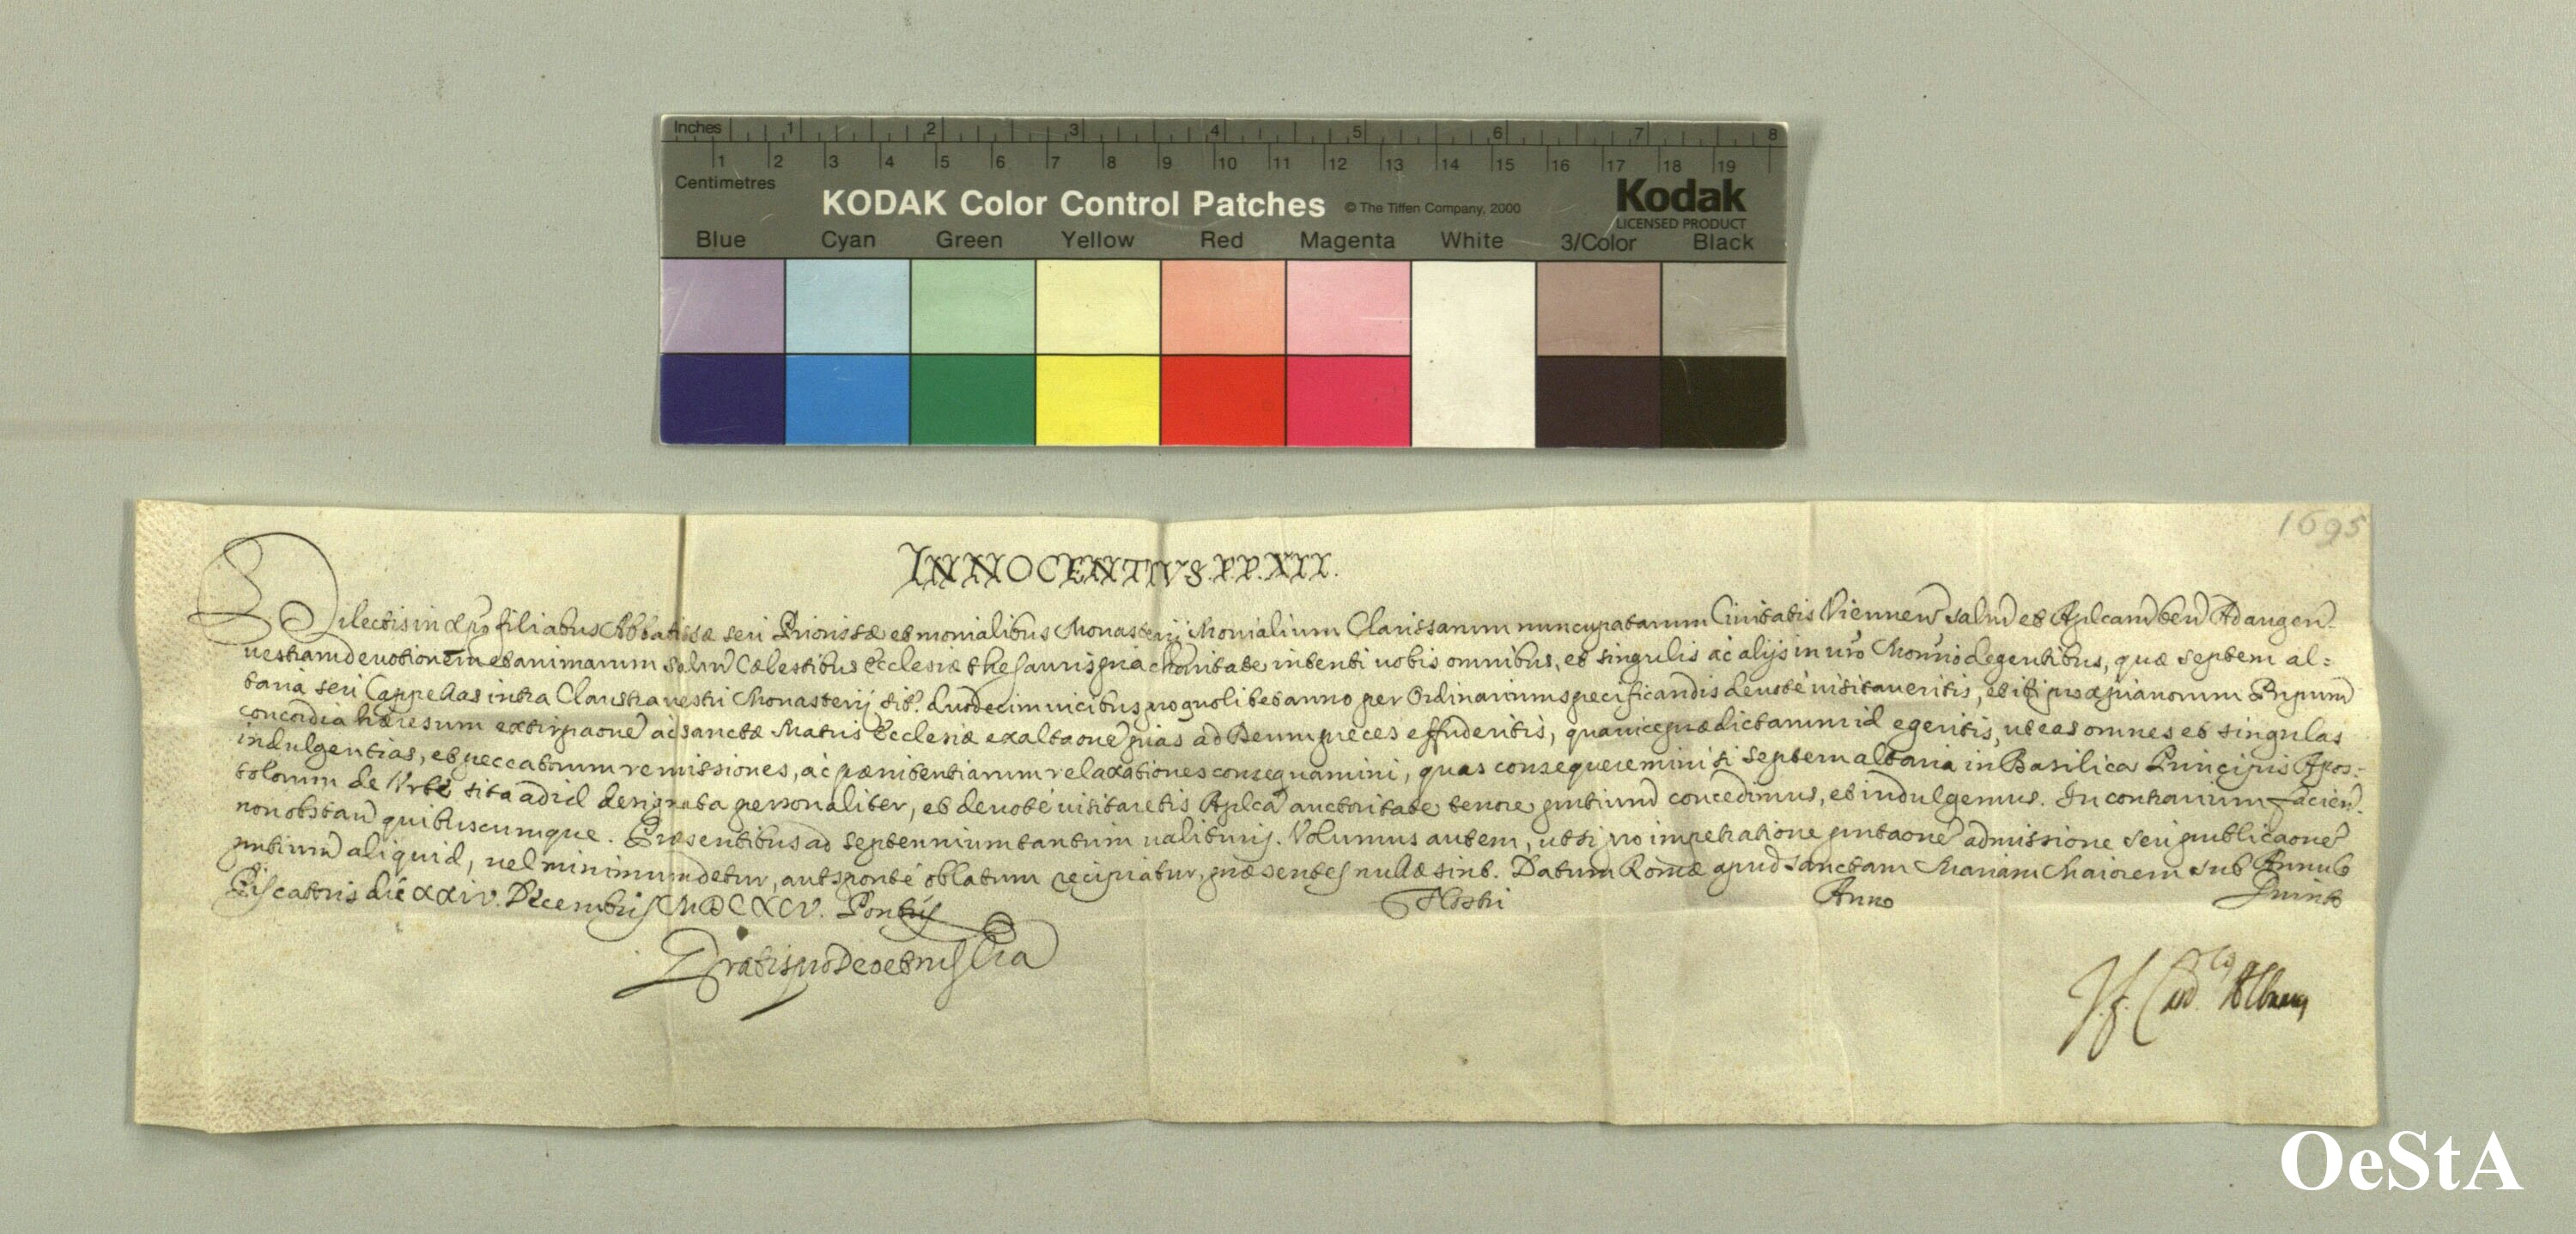 Inches 1 2 3 4 5 6 7 8
1 2 3 4 5 6 7 8 9 10 11 12 13 14 15 16 17 18 19
Centimetres
KODAK Color Control Patches © The Tiffen Company, 2000 Kodak
LICENSED PRODUCT
Blue Cyan Green Yellow Red Magenta White 3/Color Black
1695
INNOCENTIVS.P.P.XII.
Dilectis in Xpo filiabus Abbatissæ seu Priorissæ et monialibus Monasterij Monialium Clarissarum nuncupatarum Civitatis Viennen salm et Aplcam ben Ad augen
vestram devotionem et animarum salm Cælestibus Ecclesiæ thesauris pia charitate intenti vobis omnibus, et singulis ac alijs in vro Monrio degentibus, quæ septem al=
taria seu Cappellas intra Claustra vestri Monasterij sit. duodecim vicibus pro quolibet anno per Ordinarium specificandis devoté visitaveritis, et ibi pro xpianorum Pnpum
concordia hæresum extirpaone ac sanctæ Matris Ecclesiæ exaltaone pias ad Deum preces effuderitis, qua vice prædictarum id egeritis, ut eas omnes et singulas
indulgentias, et peccatorum remissiones, ac pænitentiarum relaxationes consequamini, quas consequeremini si septem altaria in Basilica Principis Apos=
tolorum de Urbe sita ad id designata personaliter, et devoté visitaretis Aplca auctoritate tenore pntium concedimus, et indulgemus. In contrarium facien
non obstan quibuscumque. Præsentibus ad septennium tantum valituris. Volumus autem, ut si pro impetratione pntaone admissione seu publicaone
pntium aliquid, vel minimum detur, aut sponté oblatum recipiatur, præsentes nullæ sint. Datum Romæ apud sanctam Mariam Maiorem sub Annulo
Piscatoris die XXIV. Decembris MDCXCV. Pontus Nostri Anno Quinto
Gratis pro Deo et
J. f. Card. Albanus
OeStA